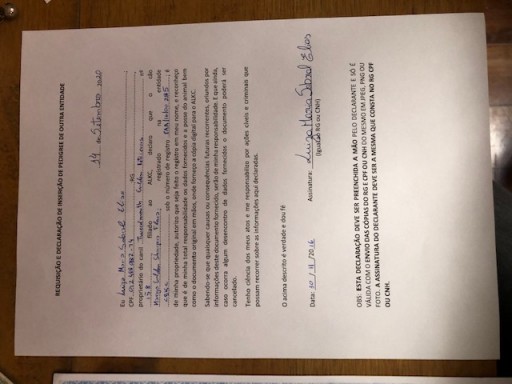 REQUISIÇÃO E DECLARAÇÃO DE INSERÇÃO DE PEDIGREE DE OUTRA ENTIDADE
19 de Setembro 2020
Eu Luiza Maria Sobral Elias, RG
CPF, se
proprietário do canil filiado ao ALKC, declaro que o cão
registrado na entidade
sob o número de registro, é
de minha propriedade, autorizo que seja feito o registro em meu nome, e reconheço
que é de minha total responsabilidade os dados fornecidos e a posse do animal bem
como o documento original em mãos, onde forneço a cópia digital para a ALKC.
Sabendo-se que quaisquer causas ou consequências futuras recorrentes, oriundos por
informações deste documento fornecido, serão de minha responsabilidade. E que ainda,
caso ocorora algum desencontro de dados fornecidos o documento poderá ser
cancelado.
Tenho ciência dos meus atos e me responsabilizo por ações cíveis e criminais que
possam recorrer sobre as informações aqui declaradas.
O acima descrito é verdade e dou fé
Data: 10/11/2016 Assinatura: Luiza Maria Sobral Elias
(igual ao RG ou CNH)
OBS: ESTA DECLARAÇÃO DEVE SER PREENCHIDA A MÃO PELO DECLARANTE E SÓ É
VÁLIDA COM O ENVIO DAS CÓPIAS DO RG E CPF OU CNH DO MESMO EM JPEG, PNG OU
FOTO. A ASSINATURA DO DECLARANTE DEVE SER A MESMA QUE CONSTA NO RG CPF
OU CNH.